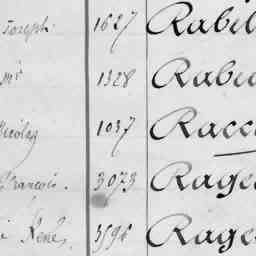 Joseph. 1627 Rabil
Mr 1328 Rabec
Nicolas 1037 Racc
François. 3073 Rage
René, 3596 Rage